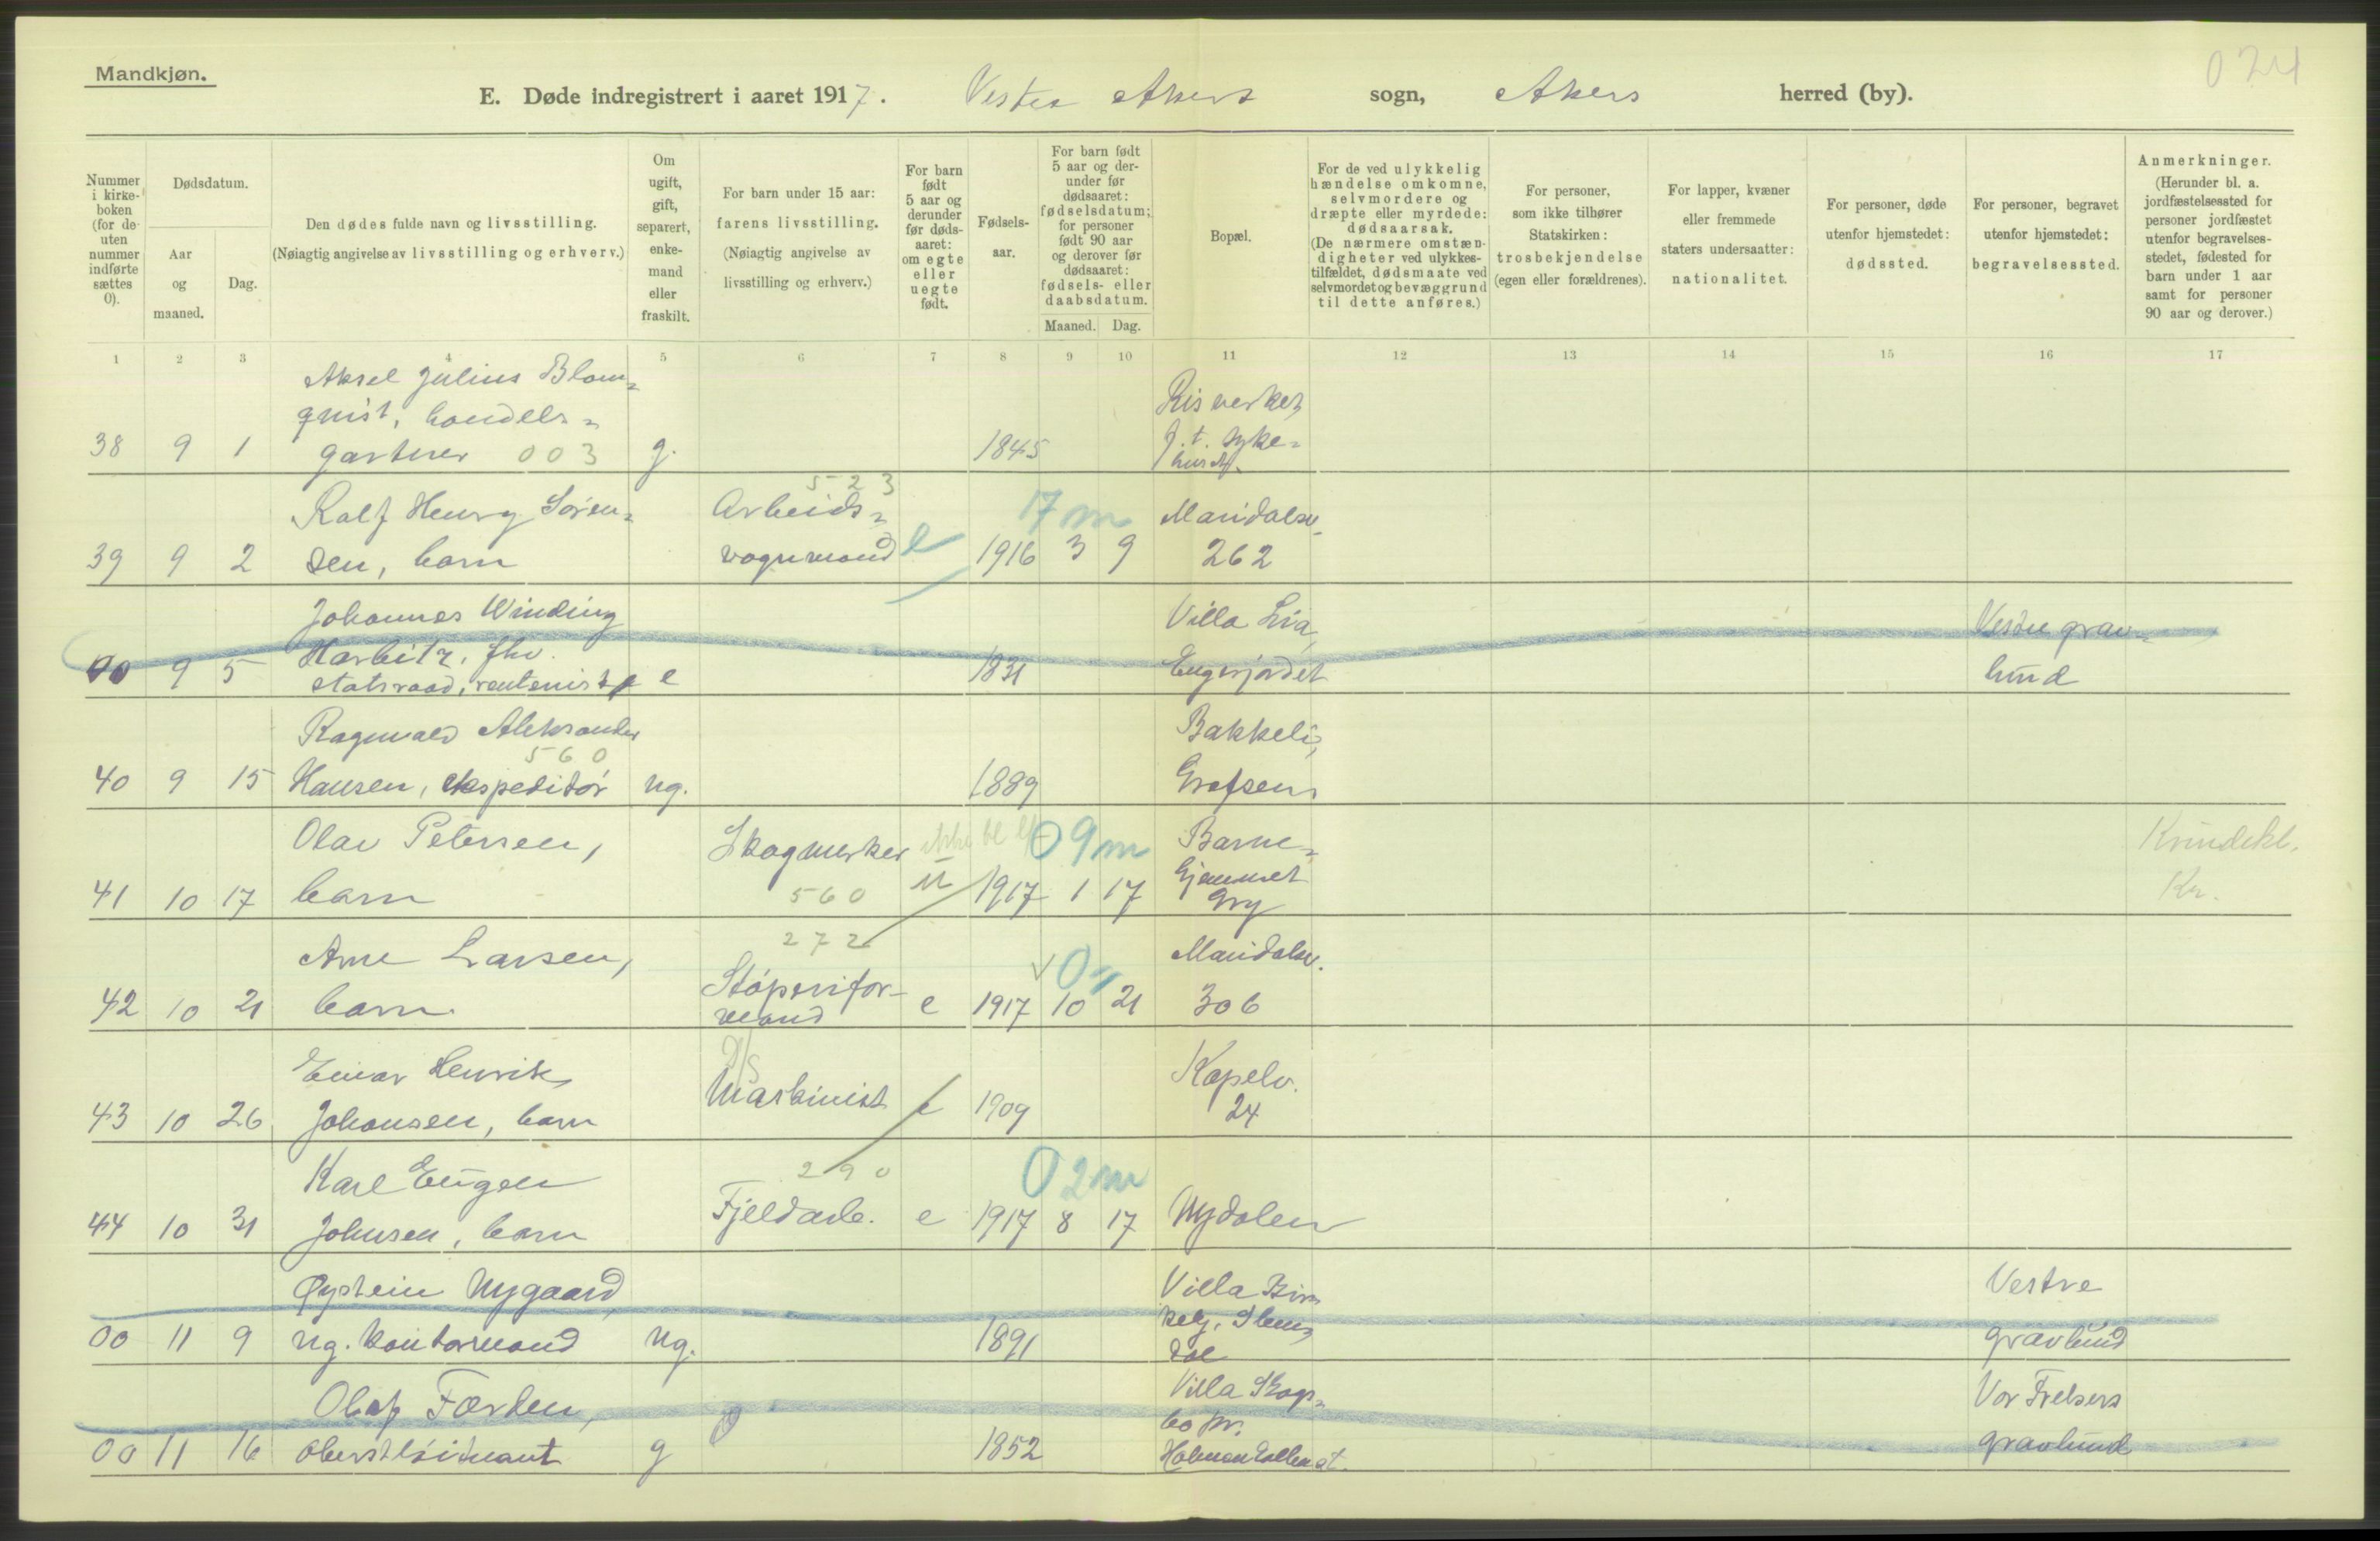 Mandkjøn.
024
E. Døde indregistrert i aaret 1917. Vestre Akers sogn, Akers herred (by).
Nummer i kirkeboken (for de uten nummer indførte sættes 0).
Dødsdatum.
Aar og maaned.
Dag.
Den dødes fulde navn og livsstilling.
(Nøiagtig angivelse av livsstilling og erhverv.)
Om ugift, gift, separert, enkemand eller fraskilt.
For barn under 15 aar:
farens livsstilling.
(Nøiagtig angivelse av livsstilling og erhverv.)
For barn født 5 aar og derunder før dødsaaret: om egte eller uegte født.
Fødselsaar.
For barn født 5 aar og derunder før dødsaaret: fødselsdatum; for personer født 90 aar og derover før dødsaaret: fødsels- eller daabsdatum.
Maaned. Dag.
Bopæl.
For de ved ulykkelig hændelse omkomne, selvmordere og dræpte eller myrdede: dødsaarsak.
(De nærmere omstændigheter ved ulykkestilfældet, dødsmaate ved selvmordet og bevæggrund til dette anføres.)
For personer, som ikke tilhører Statskirken: trosbekjendelse (egen eller forældrenes).
For lapper, kvæner eller fremmede staters undersaatter: nationalitet.
For personer, døde utenfor hjemstedet: dødssted.
For personer, begravet utenfor hjemstedet: begravelsessted.
Anmerkninger.
(Herunder bl. a. jordfæstelsessted for personer jordfæstet utenfor begravelsesstedet, fødested for barn under 1 aar samt for personer 90 aar og derover.)
1 2 3 4 5 6 7 8 9 10 11 12 13 14 15 16 17
Aksel Julius Blom=
qvist, handels=
38 9 1 gartner 003 g. 1845
Risverket,
f. t. syke=
huset.
523
Ralf Henry Sören= Arbeids= 17 m Maridalsv.
39 9 2 sen, barn vognmand e 1916 3 9 262
Johannes Winding Villa Lia, Vestre grav=
Harbitz, fhv.
00 9 5 statsraad, rentenist e 1831 Engerjordet lund
Ragnvald Aleksander Bakkeli,
560
40 9 15 Hansen, ekspeditör ug. 1889 Grefsen
Olav Petersen, Skogmerker 09 m Barne=
hjemmet
41 10 17 barn 560 u 1917 1 17 Gry
Kr.
272
Arne Larsen, 0 Maridalsv.
42 10 21 barn Stóperifor-
mand e 1917 10 21 306
Einar Henrik Kapelv.
43 10 26 Johansen, barn Maskinist e 1909 24
Karl Eugen 290 02 m
44 10 31 Johnsen, barn Fjeldarb. e 1917 8 17 Nydalen
Øystein Nygaard, Villa Bir=
kely, Slem= Vestre
00 11 9 ug. kontormand ug. 1891 dal gravlund
Olaf Førden, Villa Skogs=
bo pr. Vor Frelsers
00 11 16 oberstlöitnant g 1852 Holmenkollen st. gravlund